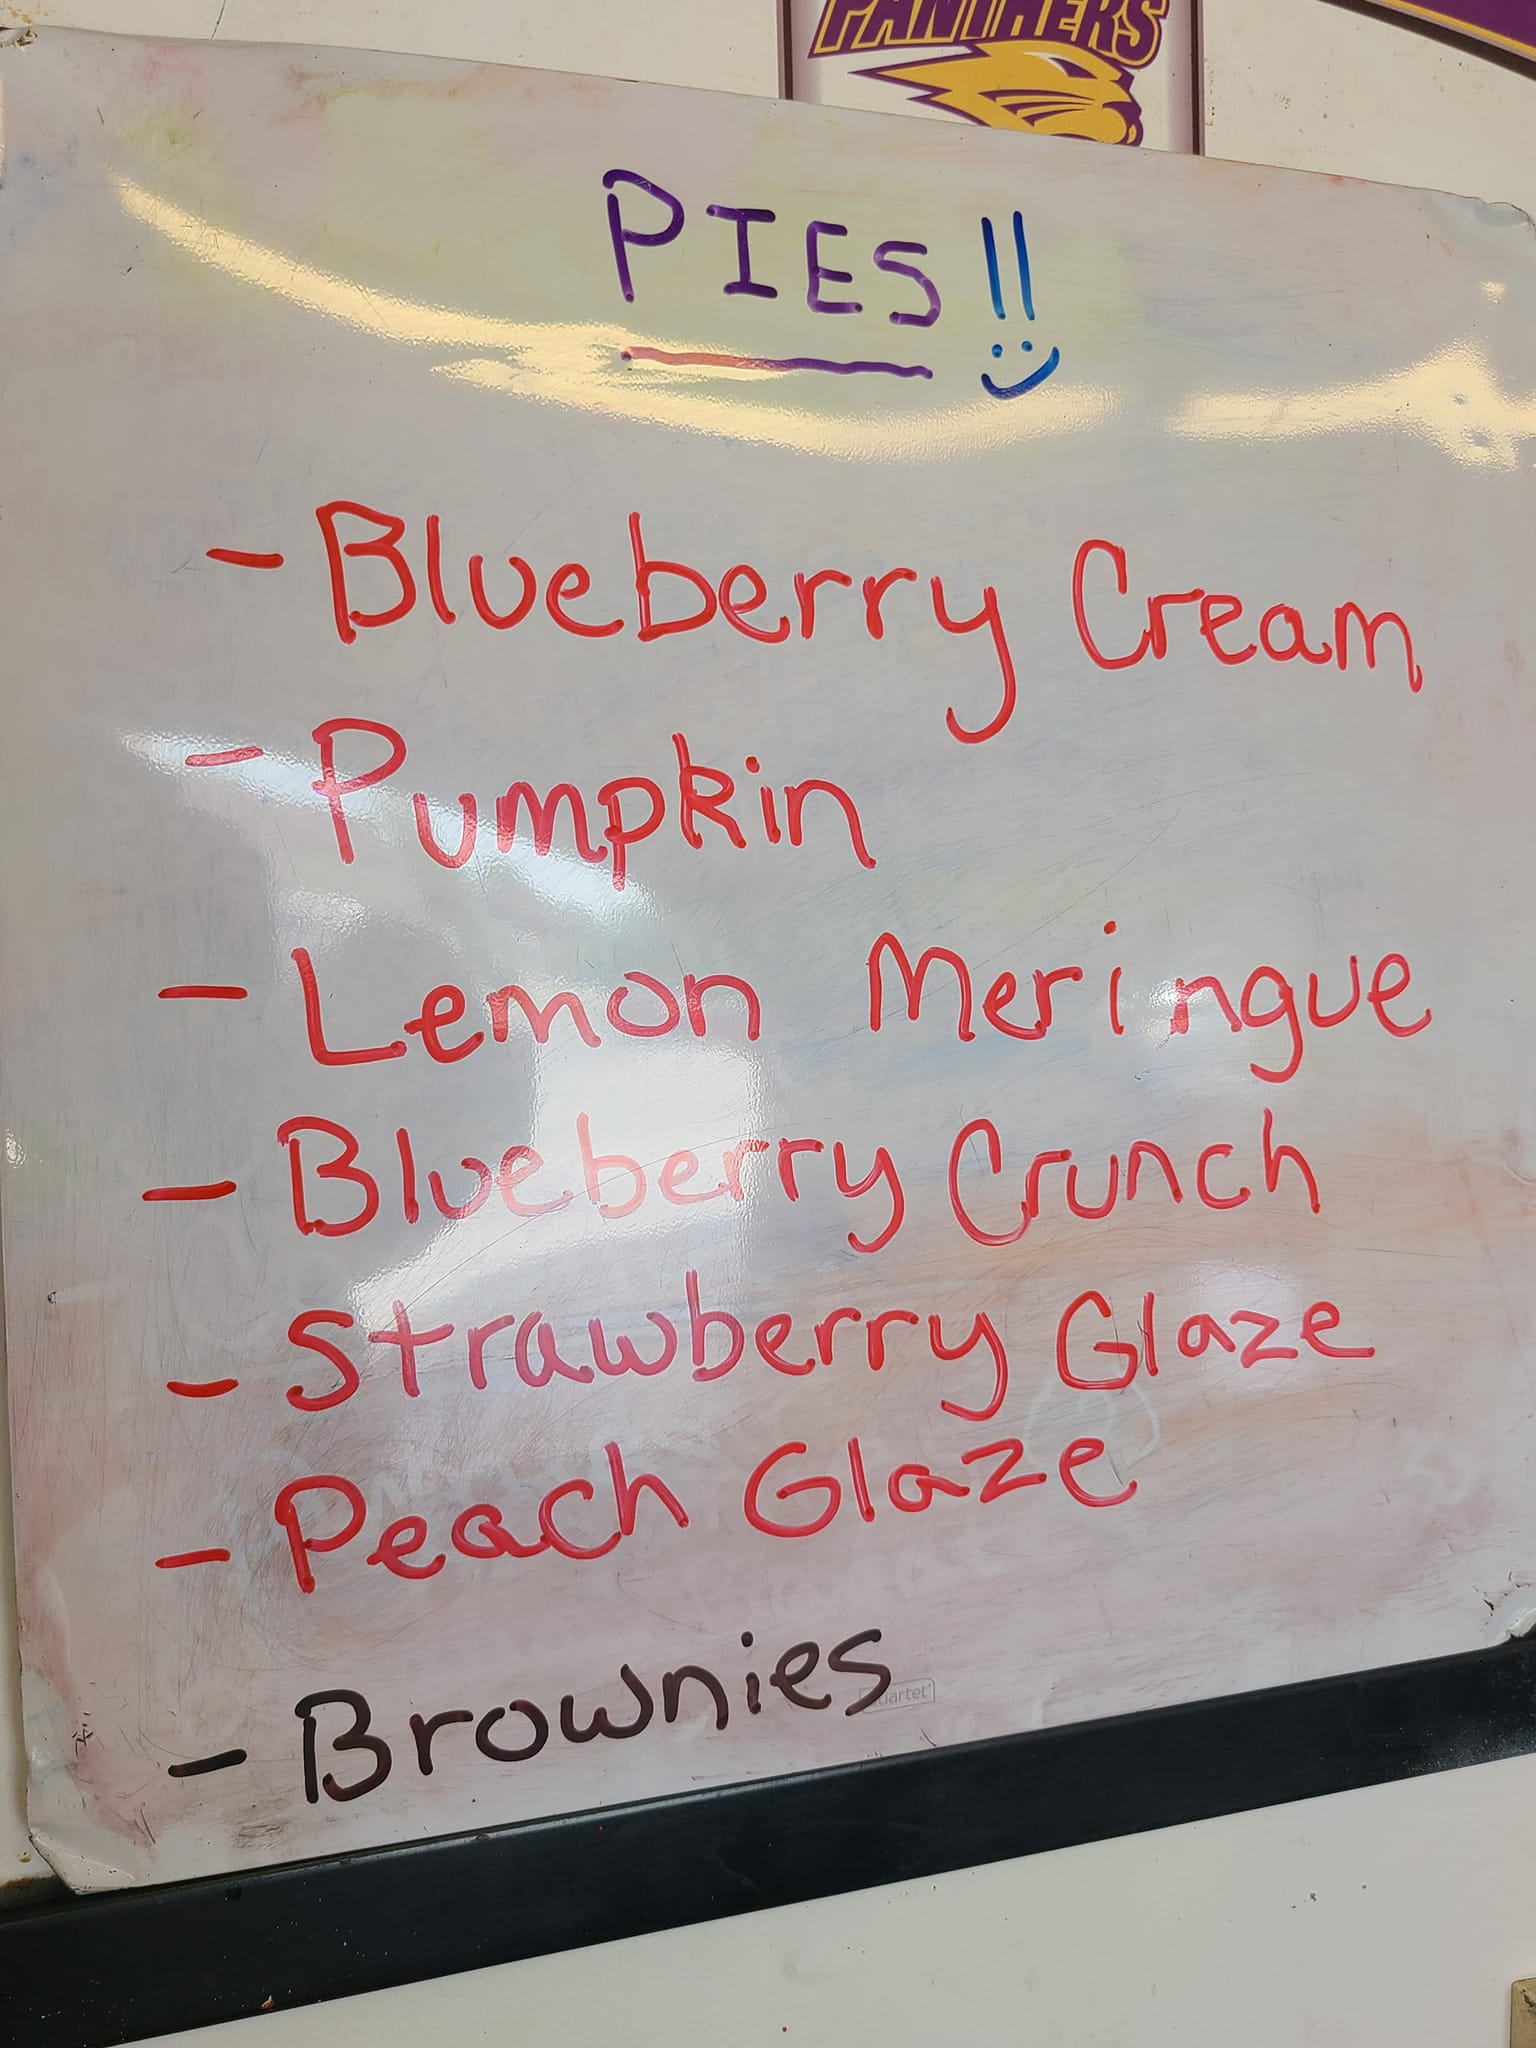 PANTHERS
PIES!!
- Blueberry Cream
- Pumpkin
- Lemon Meringue
- Blueberry Crunch
- Strawberry Glaze
- Peach Glaze
- Brownies
Quartet